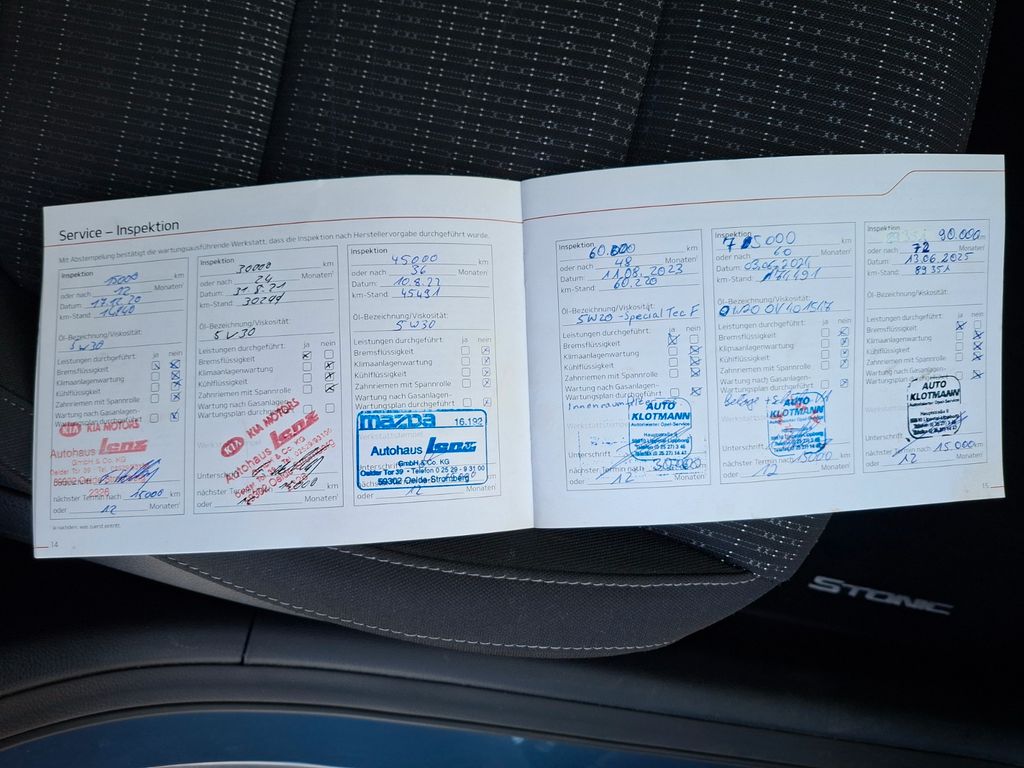 Service – Inspektion
Mit Abstempelung bestätigt die wartungsausführende Werkstatt, dass die Inspektion nach Herstellervorgabe durchgeführt wurde.
Inspektion
15000 km
oder nach 12 Monaten¹
Datum: 17.12.20
km-Stand: 14840
Öl-Bezeichnung/Viskosität:
5W30
Leistungen durchgeführt: ja nein
Bremsflüssigkeit
Klimaanlagenwartung
Kühlflüssigkeit
Zahnriemen mit Spannrolle
Wartung nach Gasanlagen-
KIA KIA MOTORS
Autohaus Lenz
GmbH & Co. KG
nächster Termin nach 15000 km
oder 12 Monaten¹
¹ je nachdem, was zuerst eintritt.
14
Inspektion
30000 km
oder nach 24 Monaten¹
Datum: 31.8.21
km-Stand: 30244
Öl-Bezeichnung/Viskosität:
5W30
Leistungen durchgeführt: ja nein
Bremsflüssigkeit
Klimaanlagenwartung
Kühlflüssigkeit
Zahnriemen mit Spannrolle
Wartung nach Gasanlagen-
Wartungsplan durchgeführt
KIA KIA MOTORS
Autohaus Lenz
oder Monaten¹
Inspektion
45.000 km
oder nach 36 Monaten¹
Datum: 10.8.22
km-Stand: 45491
Öl-Bezeichnung/Viskosität:
5W30
Leistungen durchgeführt: ja nein
Bremsflüssigkeit
Klimaanlagenwartung
Kühlflüssigkeit
Zahnriemen mit Spannrolle
Wartung nach Gasanlagen-
Wartungsplan durchgeführt
mazda 16.192
Autohaus Lenz
GmbH & Co. KG
Oelder Tor 39 - Telefon 0 25 29 - 9 31 00
59302 Oelde-Stromberg
oder 12 Monaten¹
Inspektion
60.000 km
oder nach 48 Monaten¹
Datum: 11.08.2023
km-Stand: 60.220
Öl-Bezeichnung/Viskosität:
5W20 - Special Tec F
Leistungen durchgeführt: ja nein
Bremsflüssigkeit
Klimaanlagenwartung
Kühlflüssigkeit
Zahnriemen mit Spannrolle
Wartung nach Gasanlagen-
Wartungsplan durchgeführt
AUTO
KLOTMANN
Autorisierter Opel-Service
Unterschrift
nächster Termin nach 30.000 km
oder 12 Monaten¹
Inspektion
75000 km
oder nach 60 Monaten¹
Datum: 03.06.2024
km-Stand: 74491
Öl-Bezeichnung/Viskosität:
Leistungen durchgeführt: ja nein
Bremsflüssigkeit
Klimaanlagenwartung
Kühlflüssigkeit
Zahnriemen mit Spannrolle
Wartung nach Gasanlagen-
Wartungsplan durchgeführt
AUTO
KLOTMANN
Unterschrift
nächster Termin nach 15000 km
oder 12 Monaten¹
Inspektion
90.000 km
oder nach 72 Monaten¹
Datum: 13.06.2025
km-Stand: 89351
Öl-Bezeichnung/Viskosität:
Leistungen durchgeführt: ja nein
Bremsflüssigkeit
Klimaanlagenwartung
Kühlflüssigkeit
Zahnriemen mit Spannrolle
Wartung nach Gasanlagen-
Wartungsplan durchgeführt
AUTO
KLOTMANN
Autorisierter Opel-Service
Unterschrift
nächster Termin nach 15000 km
oder 12 Monaten¹
15
STONIC